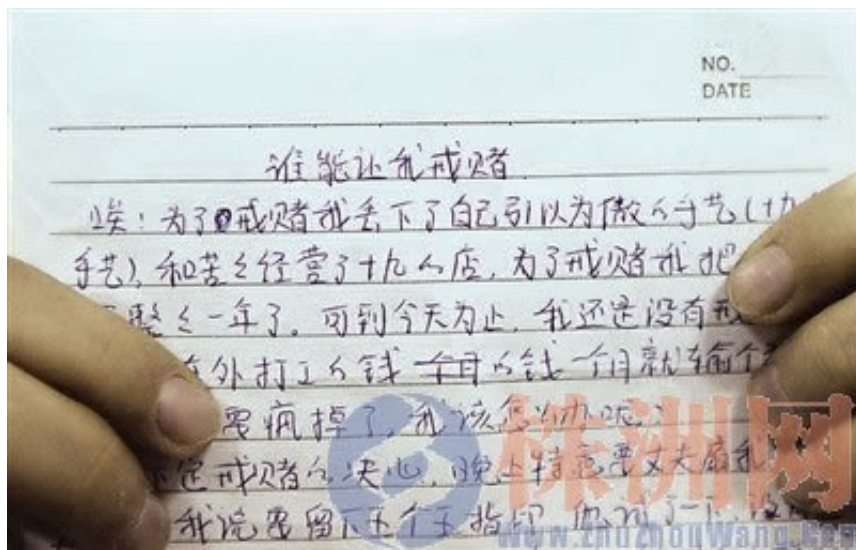 NO.
DATE
谁能让我戒赌
唉!为了戒赌我丢下了自己引以为傲的手艺(十九
手艺),和苦苦经营了十九的店,为了戒赌我把
整整一年了。可到今天为止,我还是没有戒
在外打工的钱 个月的钱一个月就输个
要疯掉了,我该怎么办呢?
下定戒赌的决心,晚上特意要丈夫扇我
我说要留下五个手指印 他打了一下,没
株洲网
www.zhuzhouwang.com